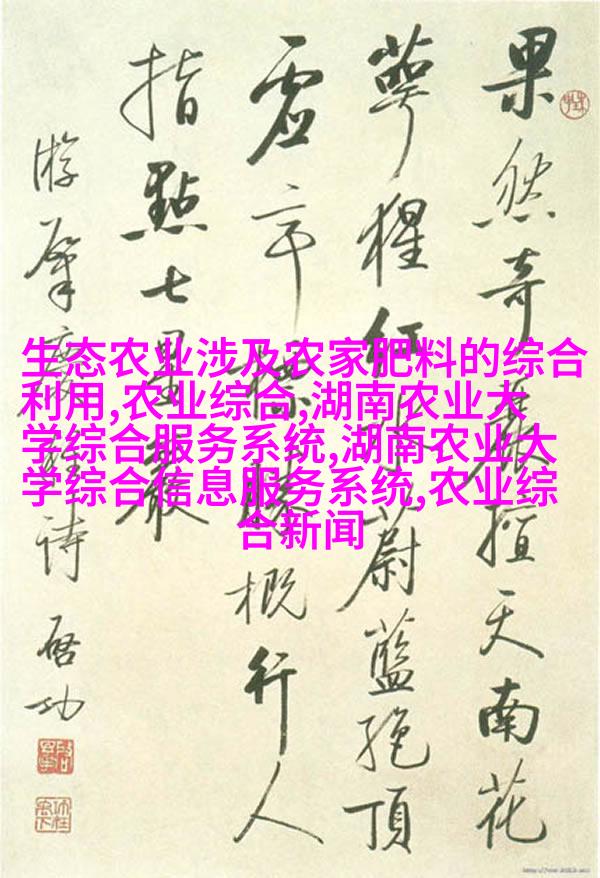 生态农业涉及农家肥料的综合
利用,农业综合,湖南农业大
学综合服务系统,湖南农业大
学综合信息服务系统,农业综
合新闻
果然奇麗擅天南花
萼猩紅蔚藍絕頂
虛亭攬勝概行人
指點七星巖
游肇慶詩 啓功